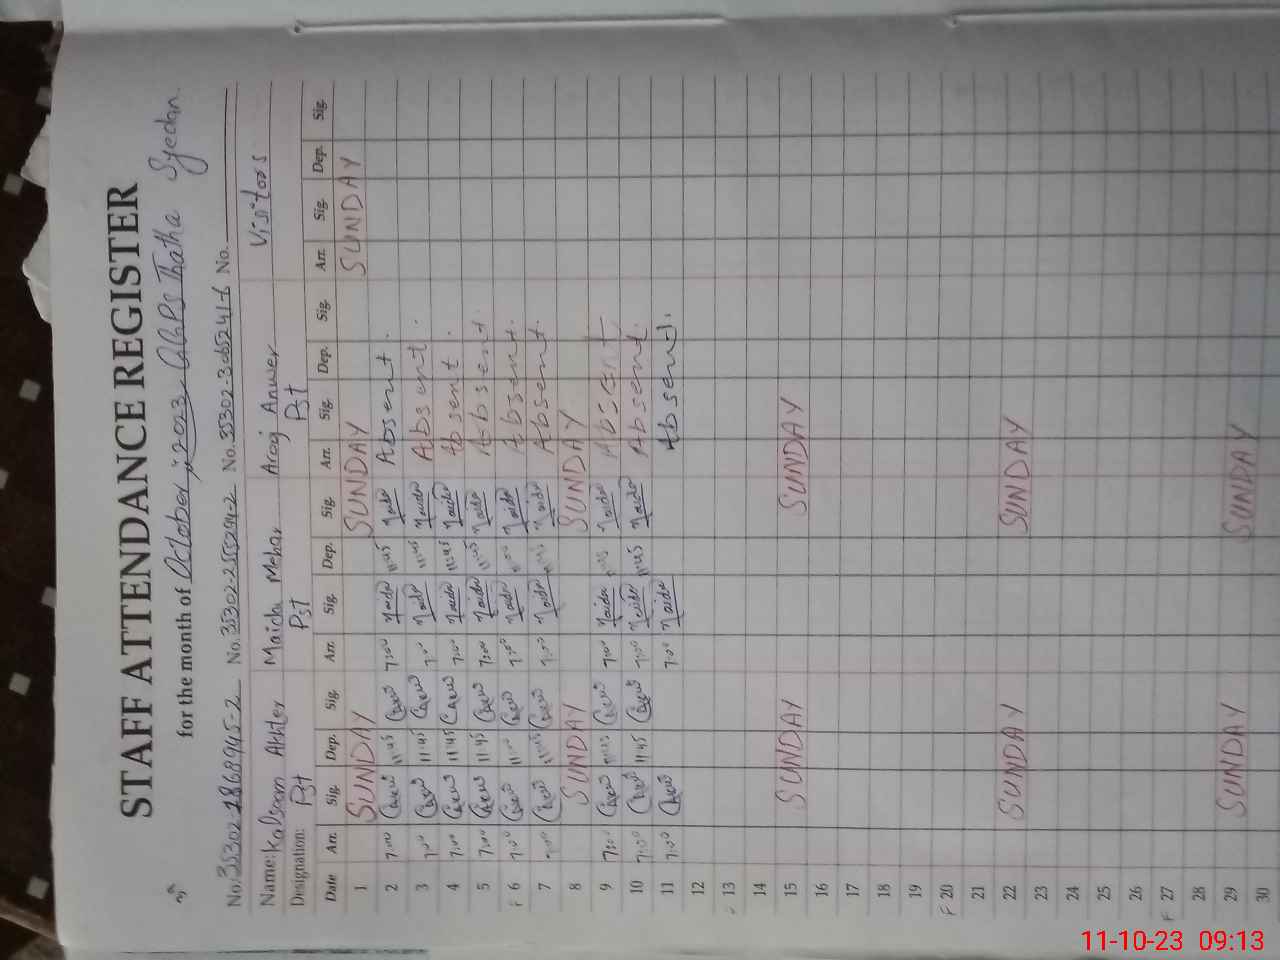 STAFF ATTENDANCE REGISTER
for the month of October, 2023 GGPS Thatha Syedan
No. 35302-1868945-2 No. No. No.
Name: Kalsoom Akhter Maida Mehar Arooj Anwer Visitors
Designation: Pst Pst Pst
Date Arr. Sig. Dep. Sig. Arr. Sig. Dep. Sig. Arr. Sig. Dep. Sig. Arr. Sig. Dep. Sig.
1 SUNDAY SUNDAY SUNDAY
2 7:00 11:45 7:00 Maida 11:45 Maida Absent.
3 7:00 11:45 7:00 Maida 11:45 Maida Absent.
4 7:00 11:45 7:00 Maida 11:45 Maida Absent.
5 7:00 11:45 7:00 Maida 11:45 Maida Absent.
F 6 7:00 11:00 7:00 Maida 11:00 Maida Absent.
7 7:00 11:45 7:00 Maida 11:45 Maida Absent.
8 SUNDAY SUNDAY
9 7:00 11:45 7:00 Maida 11:45 Maida Absent
10 7:00 11:45 7:00 Maida 11:45 Maida Absent.
11 7:00 7:00 Maida Absent.
12
13
14
15 SUNDAY SUNDAY
16
17
18
19
F 20
21
22 SUNDAY SUNDAY
23
24
25
26
F 27
28
29 SUNDAY SUNDAY
30
11-10-23 09:13